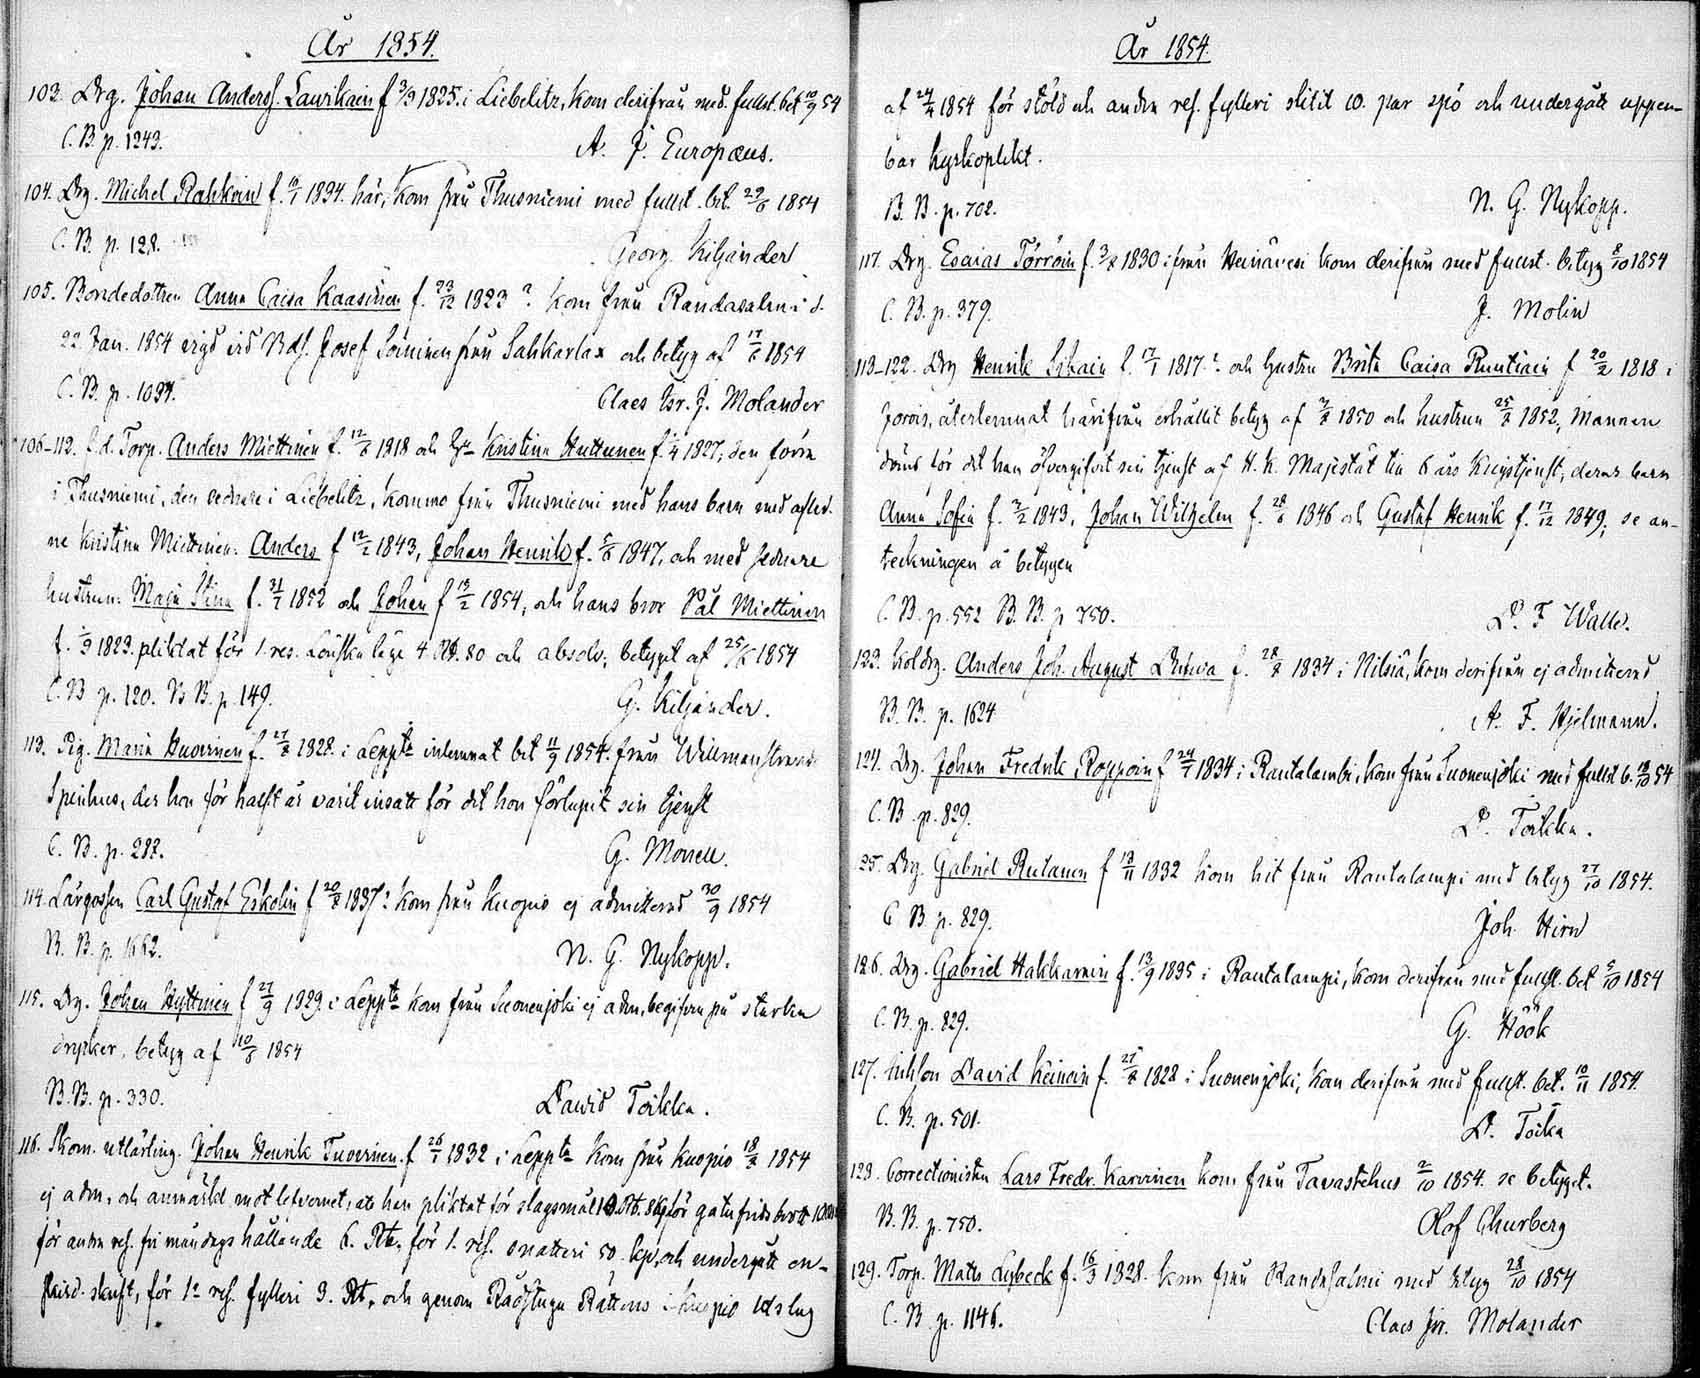 År 1854.
103. Drg. Johan Anders. Laurikain f 3/9 1825. i Liebelitz, kom derifrån med. fullst. bet 10/9 54
C. B. p. 1243.
A. J. Europæus.
104. Drg. Michel Rahkoin f. 1834. här, kom från Thusniemi med fullst. bet. 29/6 1854
C. B. p. 128.
Georg Kiljander
105. Bondedottren Anna Caisa Kaasinen f. 23/12 1823 ? kom från Randasalmi d.
22 Jan. 1854 vigd vid Bds. Josef Soininen från Sahkarlax och betyg af 17/6 1854
C. B. p. 1034.
Claes Hr. J. Molander
106-112. f. d. Torp. Anders Miettinen f. 12/8 1818 och Hu Kristina Huttunen f. 1/4 1827, den förra
i Thusniemi, den sednare i Liebelitz, komne från Thusniemi med hans barn med afled.
ne Kristina Miettinen: Anders f 12/2 1843, Johan Henrik f. 5/6 1847, och med sednare
hustrun: Maja Stina f. 31/7 1852 och Johan f 13/2 1854, och hans bror Pål Miettinen
f. 1/9 1823. pliktat för 1 res. Lönska läge 4 Rb. 80 och absolv; betyget af 25/6 1854
C. B p. 120. B B. p 149.
G. Kiljander.
113. Pig. Maria Huovinen f. 27/8 1828. i Leppla inlemnat bet 11/9 1854. från Willmanstrands
Spinhus, der hon för halft år varit insatt för det hon förlupit sin tjenst
C. B. p. 288.
G. Monell.
114. Lärgossen Carl Gustaf Eskolin f 20/8 1837? kom från Kuopio ej admitterad 30/9 1854
B. B. p. 1662.
N. G. Nykopp.
115. Dg. Johan Hyttinen f 27/9 1829. i Leppla kom från Suonenjoki ej adm, begifven på starka
drycker. betyg af 10/8 1854
B. B. p. 330.
David Toikka.
116. Skom. utlärling. Johan Henrik Tuovinen. f 26/1 1832 i Leppla kom från Kuopio 18/8 1854
ej adm, och anmärkt mot lefvernet, att han pliktat för slagsmål Rb. för gatufrids brott
för andra res. fri måndags hållande 6. Rb, för 1. res. snatteri 50 kp, och undergått en-
skild. skrift, för 1a res. fylleri 3. Rb, och genom Rådstugu Rättens i Kuopio utslag
År 1854.
af 24/4 1854 för stöld och andra res. fylleri slitit 10. par spö och undergått uppen-
bar kyrkoplikt.
B. B. p. 702.
N. G. Nykopp.
117. Drg. Esaias Törröin f. 3/8 1830 i från Heinävesi kom derifrån med fullst. betyg 8/10 1854
C. B. p. 379.
J. Molin
118-122. Drg Henrik Sikain f. 17/1 1817? och hustru Brita Caisa Ruuttiain f 20/2 1818 i
Jorois, återlemnat härifrån erhållit betyg af 1850 och hustrun 25/8 1852, Mannen
dömd för det han öfvergifvit sin tjenst af H. K. Majestät till 6 års Krigstjenst, deras barn
Anna Sofia f. 7/2 1843, Johan Wilhelm f. 28/6 1846 och Gustaf Henrik f. 17/12 1849; se an-
teckningen å betygen
C. B. p. 552 B. B. p 750.
D. F Walle.
123. Koldrg. Anders Joh. August Drufva f. 28/8 1834 i Nilsiä, kom derifrån ej admitterad
B. B. p. 1624
A. F. Hjelmann.
124. Drg. Johan Fredrik Roppoin f 24/7 1834 i Rautalambi, kom från Suonenjoki med fullst b. 18/10 54
C. B. p. 829.
D. Toikka.
25. Drg. Gabriel Rutanen f 13/11 1832 kom hit från Rautalampi med betyg 27/10 1854.
C B. p. 829.
Joh. Hirn
126. Drg. Gabriel Hakkarainen f. 13/9 1835 i Rautalampi, kom derifrån med fullst. bet 5/10 1854
C. B. p. 829.
G. Höök
127. Inhson David Keinoin f. 27/8 1828 i Suonenjoki, kom derifrån med fullst. bet. 10/11 1854.
C. B. p. 501.
D. Toika
128. Correctionisten Lars Fredr. Karvinen kom från Tavastehus 2/10 1854. se betyget.
B. B. p. 750.
Olof Churberg
129. Torp. Matts Lybeck f. 16/3 1828. kom från Randasalmi med betyg 28/10 1854
C. B. p. 1146.
Claes Joh. Molander